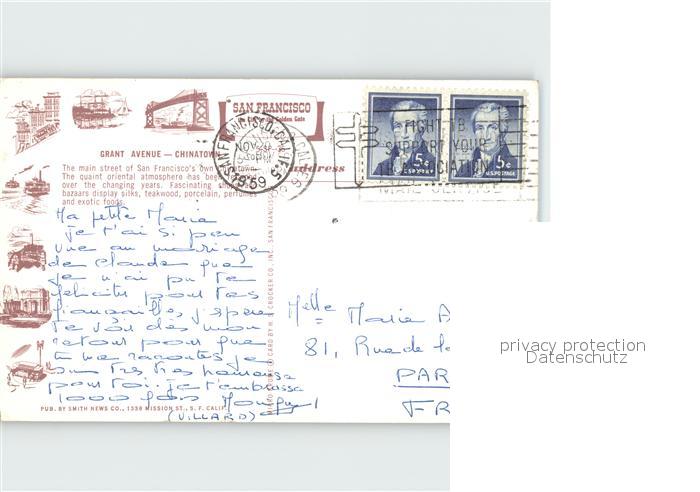 SAN FRANCISCO
GRANT AVENUE — CHINATOWN
The main street of San Francisco's own
The quaint oriental atmosphere has
over the changing years. Fascinating
bazaars display silks, teakwood, porcelain, perfumes
and exotic foods.
Address
SAN FRANCISCO, CALIF.
NOV
1959
FIGHT TB
SUPPORT YOUR
TB ASSOCIATION
5c
U.S. POSTAGE
5c
U.S. POSTAGE
Ma petite Marie
je t'ai si peu
vue au mariage
de Claude que
je n'ai pu te
féliciter pour tes
fiançailles j'espère
te voir dès mon
retour pour que
tu me racontes je
suis très très heureuse
pour toi. je t'embrasse
1000 fois
(VILLARD)
H. S. CROCKER CO., INC. SAN FRANCISCO
Melle Marie A
81, Rue de la
PAR
FR
PUB. BY SMITH NEWS CO., 1338 MISSION ST., S. F. CALIF.
privacy protection
Datenschutz